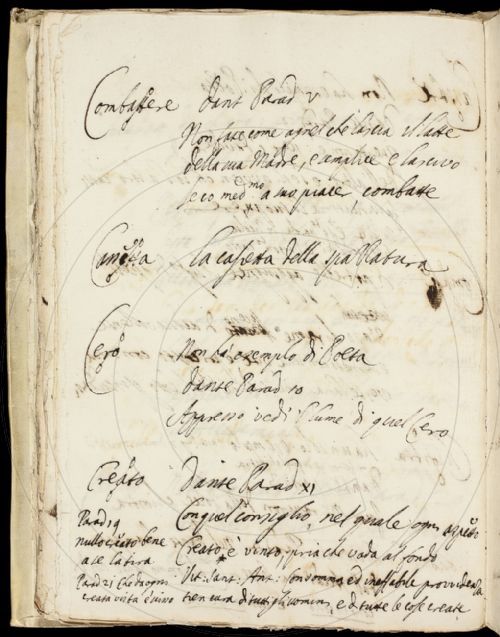 Combattere Dant Parad V
Non fate come agnel che lascia il latte
della sua Madre, e semplice e lascivo
seco med.mo a suo piacer, combatte
la casetta della spa
Cero Non ha esemplo di Poeta
Dante Parad 10
Appresso vedi il lume di quel Cero
Creato Dante Parad XI
Con quel consiglio, nel quale ogni aspetto
Creato, è vinto, pria che vada al fondo
Parad 19
nullo creato bene
a se la tira
Parad 21 che da ogni
creata vista è
Vit: Sant: Ant: ed ineffabile provvidenza
tien cura di tutti gli uomini, e di tutte le cose create